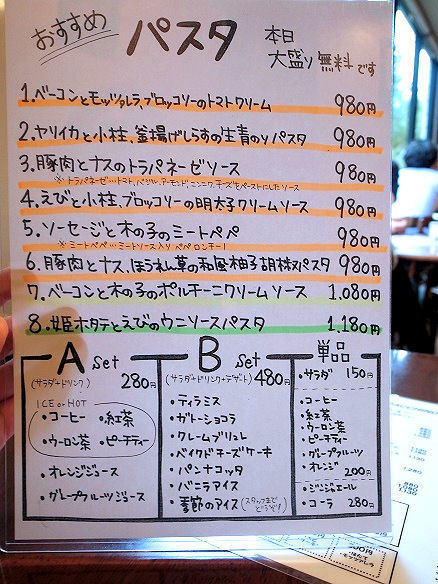 おすすめ パスタ 本日
大盛り無料です
1.ベーコンとモッツァレラ、ブロッコリーのトマトクリーム 980円
2.ヤリイカと小柱、釜揚げしらすの生青のりパスタ 980円
3.豚肉とナスのトラパネーゼソース 980円
※トラパネーゼ…トマト、バジル、アーモンド、ニンニク、チーズをペーストにしたソース
4.えびと小柱、ブロッコリーの明太子クリームソース 980円
5.ソーセージと木の子のミートペペ 980円
※ミートペペ…ミートソース入りペペロンチーノ
6.豚肉とナス、ほうれん草の和風柚子胡椒パスタ 980円
7.ベーコンと木の子のポルチーニクリームソース 1,080円
8.姫ホタテとえびのウニソースパスタ 1,180円
A set
(サラダ+ドリンク) 280円
ICE or HOT
・コーヒー ・紅茶
・ウーロン茶 ・ピーチティー
・オレンジジュース
・グレープフルーツジュース
B set
(サラダ+ドリンク+デザート) 480円
・ティラミス
・ガトーショコラ
・クレームブリュレ
・ベイクドチーズケーキ
・パンナコッタ
・バニラアイス
・季節のアイス(スタッフまでどうぞ!)
単品
・サラダ 150円
・コーヒー
・紅茶
・ウーロン茶
・ピーチティー
・グレープフルーツ
・オレンジ 200円
・ジンジャエール
・コーラ 280円